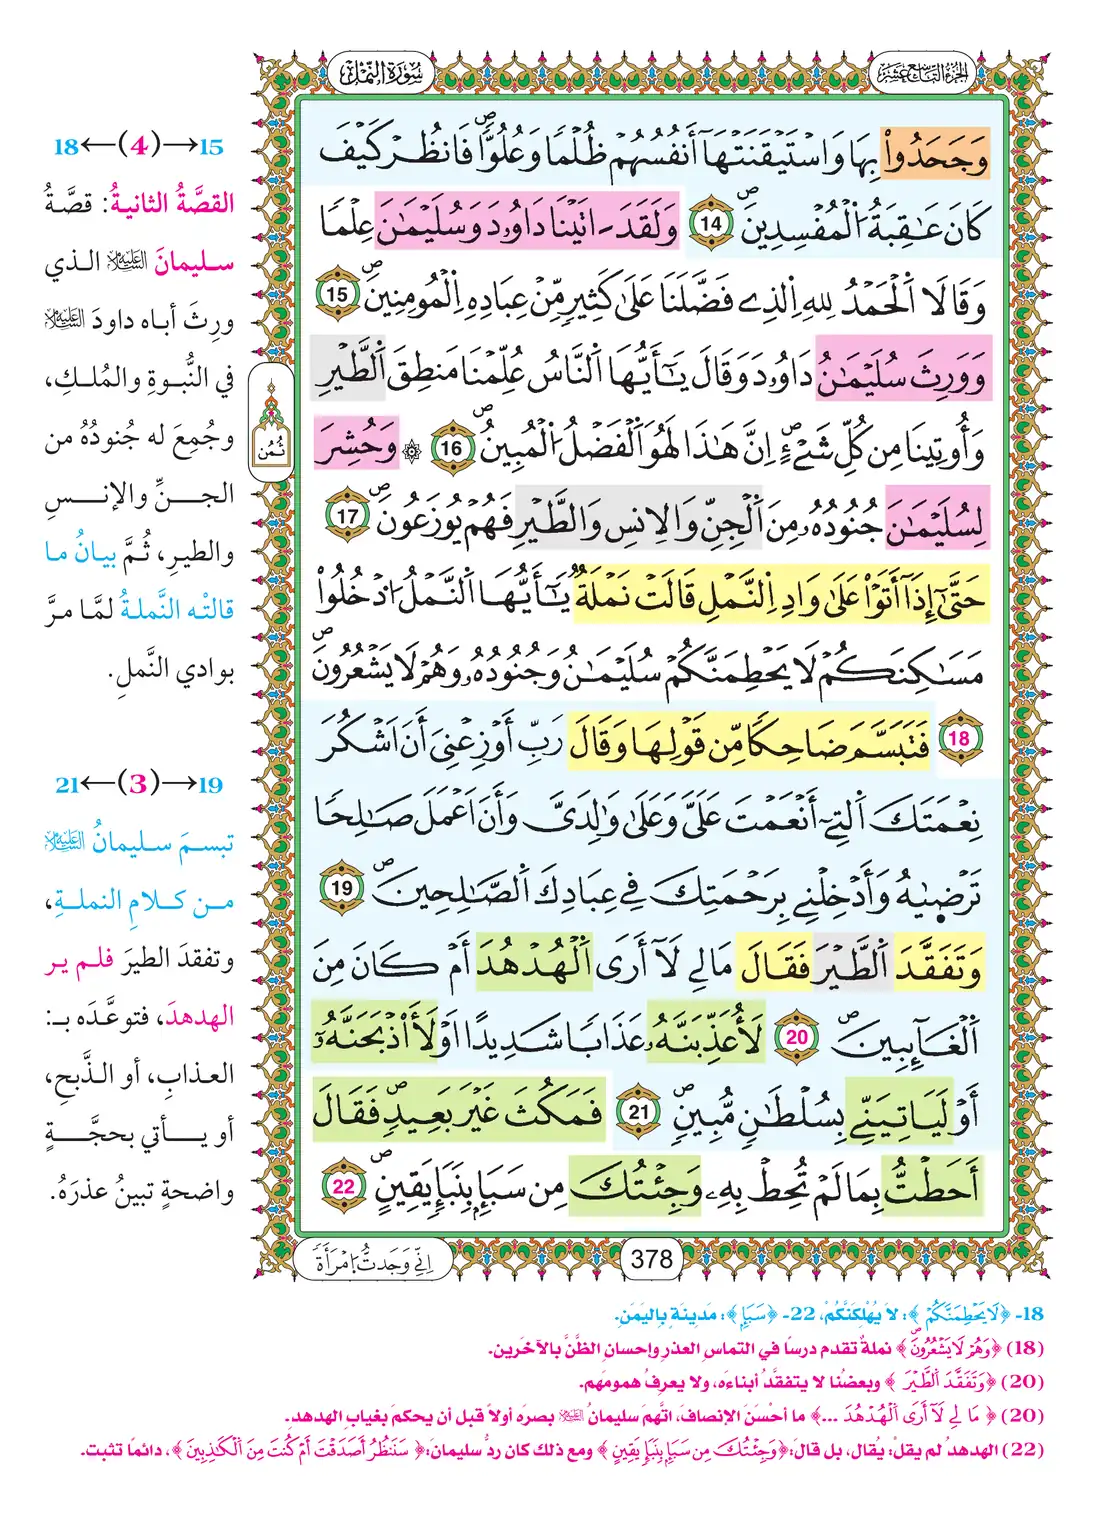 الجزء التاسع عشر
سُورَةُ النَّمْلِ
وَجَحَدُواْ بِهَا وَاسْتَيْقَنَتْهَآ أَنفُسُهُمْ ظُلْمٗا وَعُلُوّٗاۖ فَانظُرْ كَيْفَ
كَانَ عَٰقِبَةُ اُلْمُفْسِدِينَۖ 14 وَلَقَدَ اٰتَيْنَا دَاوُۥدَ وَسُلَيْمَٰنَ عِلْمٗا
وَقَالَا اَلْحَمْدُ لِلهِ اِلذِے فَضَّلَنَا عَلَىٰ كَثِيرٖ مِّنْ عِبَادِهِ اِلْمُومِنِينَۖ 15
وَوَرِثَ سُلَيْمَٰنُ دَاوُۥدَ وَقَالَ يَٰٓأَيُّهَا اَلنَّاسُ عُلِّمْنَا مَنطِقَ اَلطَّيْرِ
وَأُوتِينَا مِن كُلِّ شَےْءٍۖ اِنَّ هَٰذَا لَهُوَ اَلْفَضْلُ اُلْمُبِينُۖ 16 ۞ وَحُشِرَ
لِسُلَيْمَٰنَ جُنُودُهُۥ مِنَ اَلْجِنِّ وَالِانسِ وَالطَّيْرِ فَهُمْ يُوزَعُونَۖ 17
حَتَّىٰٓ إِذَآ أَتَوْاْ عَلَىٰ وَادِ اِلنَّمْلِ قَالَتْ نَمْلَةٞ يَٰٓأَيُّهَا اَلنَّمْلُ اُدْخُلُواْ
مَسَٰكِنَكُمْ لَا يَحْطِمَنَّكُمْ سُلَيْمَٰنُ وَجُنُودُهُۥ وَهُمْ لَا يَشْعُرُونَۖ
18 فَتَبَسَّمَ ضَاحِكٗا مِّن قَوْلِهَا وَقَالَ رَبِّ أَوْزِعْنِىٓ أَنَ اَشْكُرَ
نِعْمَتَكَ اَلتِےٓ أَنْعَمْتَ عَلَىَّ وَعَلَىٰ وَٰلِدَىَّ وَأَنَ اَعْمَلَ صَٰلِحٗا
تَرْضَىٰهُ وَأَدْخِلْنِے بِرَحْمَتِكَ فِے عِبَادِكَ اَلصَّٰلِحِينَۖ 19
وَتَفَقَّدَ اَلطَّيْرَ فَقَالَ مَالِے لَآ أَرَى اَلْهُدْهُدَ أَمْ كَانَ مِنَ
اَلْغَآئِبِينَۖ 20 لَأُعَذِّبَنَّهُۥ عَذَابٗا شَدِيداً اَوْ لَأَاْذْبَحَنَّهُۥٓ
أَوْ لَيَاتِيَنِّے بِسُلْطَٰنٖ مُّبِينٖۖ 21 فَمَكُثَ غَيْرَ بَعِيدٖۖ فَقَالَ
أَحَطتُّ بِمَا لَمْ تُحِطْ بِهِۦ وَجِئْتُكَ مِن سَبَإِۢ بِنَبَإٖ يَقِينٍۖ 22
ثُمُن
إِنِّے وَجَدتُّ اُمْرَأَةٗ
378
15→(4)←18
القصَّةُ الثانيةُ: قصَّةُ
سليمانَ عليه السلام الذي
ورِثَ أباه داودَ عليه السلام
في النُّبوةِ والمُلكِ،
وجُمِعَ له جُنودُهُ من
الجنِّ والإنسِ
والطيرِ، ثُمَّ بيانُ ما
قالتْه النَّملةُ لمَّا مرَّ
بوادي النَّملِ.
19→(3)←21
تبسمَ سليمانُ عليه السلام
من كلامِ النملةِ،
وتفقدَ الطيرَ فلم ير
الهدهدَ، فتوعَّدَه بـ:
العذابِ، أو الذَّبحِ،
أو يأتي بحجَّةٍ
واضحةٍ تبينُ عذرَهُ.
18- ﴿لَا يَحْطِمَنَّكُمْ﴾: لاَ يُهْلِكَنَّكُمْ، 22- ﴿سَبَإٖ﴾: مَدِينَةٍ بِاليَمَنِ.
(18) ﴿وَهُمْ لَا يَشْعُرُونَۖ﴾ نملةٌ تقدم درسًا في التماسِ العذرِ وإحسانِ الظَّنِّ بالآخَرين.
(20) ﴿وَتَفَقَّدَ اَلطَّيْرَ﴾ وبعضُنا لا يتفقَّدُ أبناءَه، ولا يعرفُ همومَهم.
(20) ﴿مَا لِے لَآ أَرَى اَلْهُدْهُدَ ...﴾ ما أحْسَنَ الإنصافَ، اتَّهمَ سليمانُ عليه السلام بصرَه أولاً قبل أن يحكمَ بغيابِ الهدهدِ.
(22) الهدهدُ لم يقلْ: يُقال، بل قالَ: ﴿وَجِئْتُكَ مِن سَبَإِۢ بِنَبَإٖ يَقِينٍ﴾ ومع ذلك كان ردُّ سليمانَ: ﴿سَنَنظُرُ أَصَدَقْتَ أَمْ كُنتَ مِنَ اَلْكَٰذِبِينَ﴾، دائمًا تثبت.